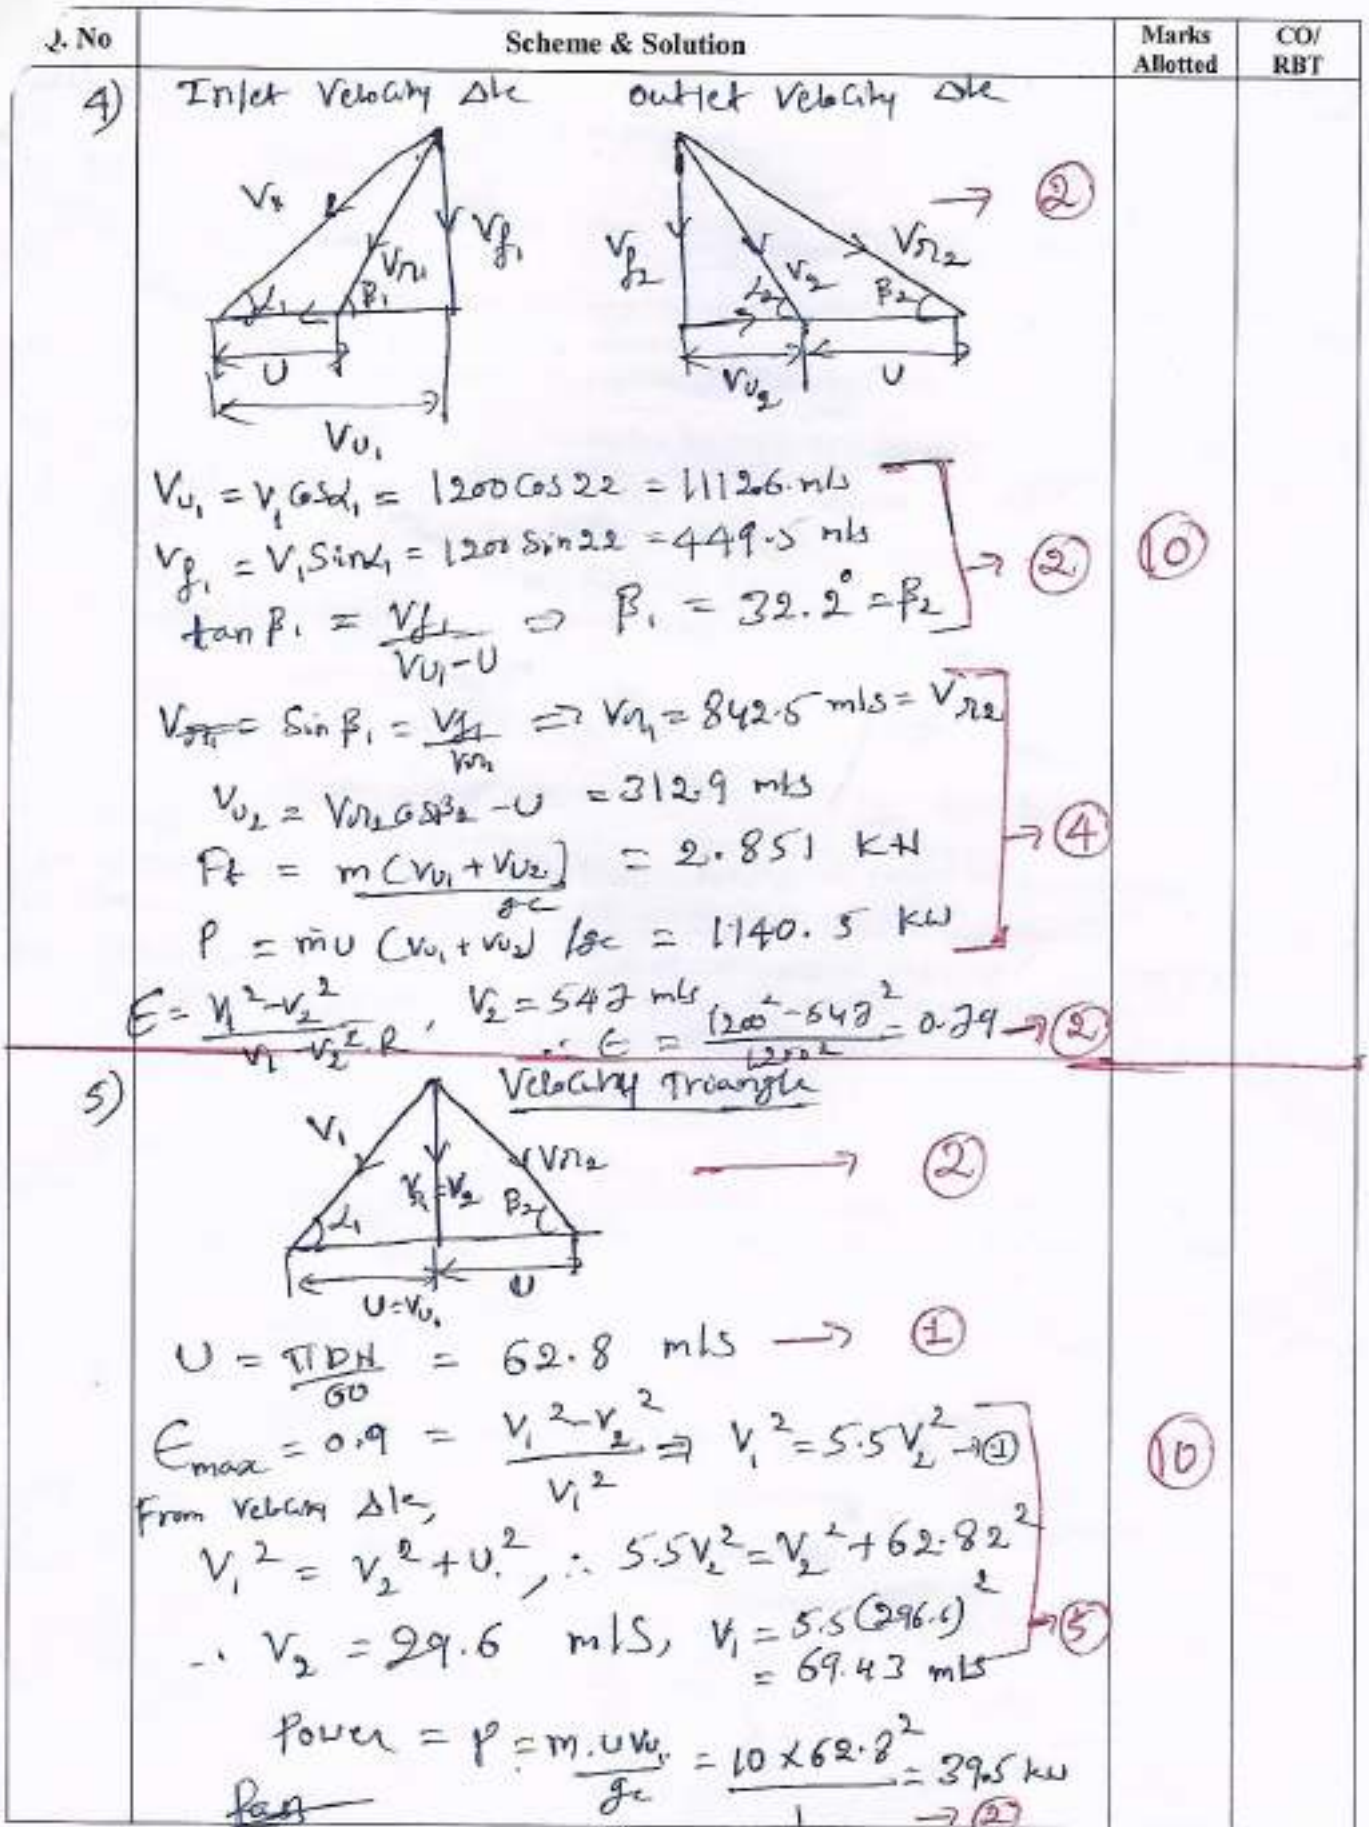 Q. No Scheme & Solution Marks Allotted CO/ RBT
4) Inlet Velocity Δle outlet Velocity Δle
V₁ Vr₁ Vf₁ α₁ β₁ U Vu₁
Vf₂ V₂ Vr₂ α₂ β₂ Vu₂ U → 2
Vu₁ = V₁ Cosα₁ = 1200 Cos 22 = 1112.6 m/s
Vf₁ = V₁ Sinα₁ = 1200 Sin 22 = 449.5 m/s → 2 10
tan β₁ = Vf₁ / Vu₁-U ⇒ β₁ = 32.2° = β₂
Sin β₁ = Vf₁ / Vr₁ ⇒ Vr₁ = 842.5 m/s = Vr₂
Vu₂ = Vr₂ Cosβ₂ - U = 312.9 m/s
Ft = m (Vu₁ + Vu₂) / gc = 2.851 KN → 4
P = ṁU (Vu₁ + Vu₂) / gc = 1140.5 kW
E = V₁²-V₂² / V₁²-V₂².R , V₂ = 547 m/s ∴ E = 1200²-547² / 1200² = 0.79 → 2
5) Velocity Triangle
V₁ Vr₁=V₂ Vr₂ α₁ β₂ → 2
U=Vu₁ U
U = πDN / 60 = 62.8 m/s → 1
Emax = 0.9 = V₁²-V₂² / V₁² ⇒ V₁² = 5.5V₂² → 1 10
From Velocity Δle,
V₁² = V₂² + U², ∴ 5.5V₂² = V₂² + 62.82²
∴ V₂ = 29.6 m/s, V₁ = 5.5(296.6)² → 5
= 69.43 m/s
Power = P = m.UVu₁ / gc = 10 x 62.8² / 1 = 39.5 kW
→ 2